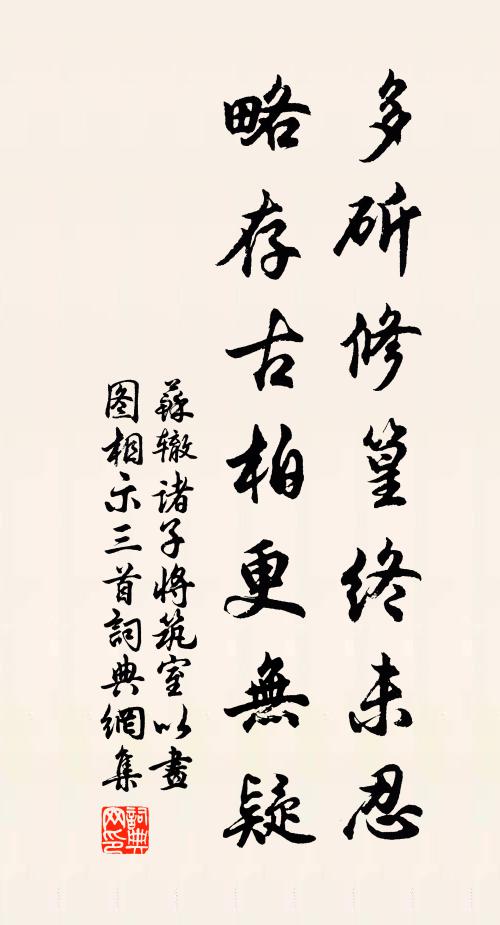 多斫修篁終未忍
略存古柏更無疑
蘇辙诸子將筑室以畫
图相示三首詞典網集
詞典網印